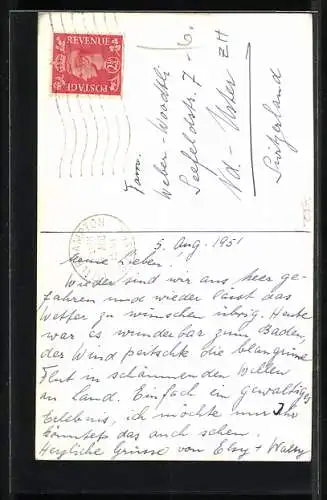 POSTAGE
REVENUE
2½D
Fam.
Weber-Woodtli
Seefeldstr. 7
Nd.-Uster ZH
Switzerland
5. Aug. 1951
Meine Lieben.
Wieder sind wir ans Meer ge-
fahren und wieder lässt das
Wetter zu wünschen übrig. Heute
war es wunderbar zum Baden,
der Wind peitschte die blaugrüne
Flut in schäumenden Wellen
an Land. Einfach ein gewaltiges
Erlebnis, ich möchte nur Ihr
könntets das auch sehen.
Herzliche Grüsse von Elsy + Walty